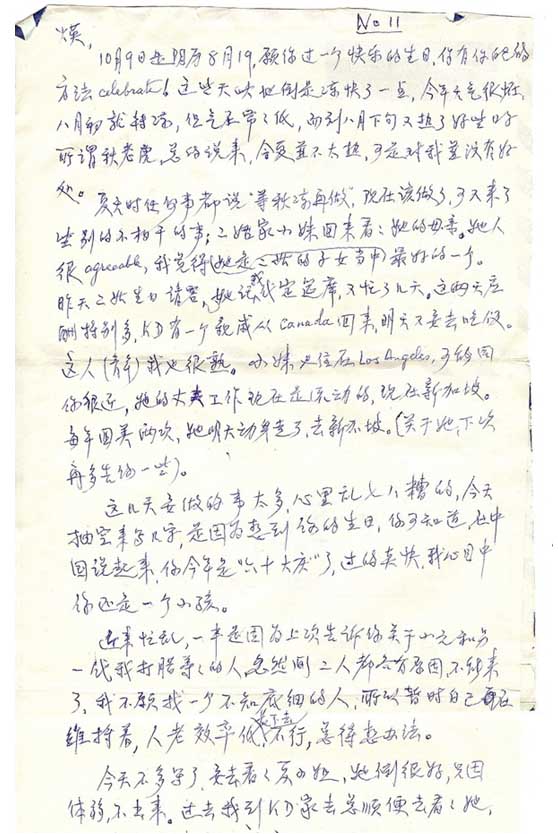 No 11
煐,
10月9日是阴历8月19,愿你过一个快乐的生日,你有你自己的
方法celebrate!这些天此地倒是凉快了一点,今年天气很怪,
八月初就转凉,但气不常了低,而到八月下旬又热了好些日子
所谓秋老虎,总的说来,今夏並不太热,可是对我並没有好
处。
夏天时任何事都说"等秋凉再做",现在该做了,可又来了
些别的不相干的事;二姑家小妹回来看看她的母亲。她人
很agreeable,我觉得(她是二姑的子女当中)最好的一个。
昨天二姑生日请客,她让我代定筵席,又忙了几天。这两天应
酬特别多,KD有一个親戚从Canada回来,明天又要去吃饭。
这人我也很熟。小妹也住在Los Angeles,可能同
你很近,她的丈夫工作现在是流动的,现在新加坡。
每年回美两次,她明天动身走了,去新加坡。(关于她,下次
再多告诉一些)。
这几天要做的事太多,心里乱七八糟的,今天
抽空来写几字,是因为想到你的生日,你可知道,在中
国说起来,你今年是"六十大庆"了,过的真快,我心目中
你还是一个小孩。
近来忙乱,一半是因为上次告诉你关于小元和另
一代我打腊等等的人,忽然间二人都各有原因,不能来
了,我不愿找一个不知底细的人,所以暂时自己在
维持着,人老效率低,下去不行,总得想办法。
今天不多写了,要去看看夏小姐,她倒很好,只因
体弱,不出来。过去我到KD家去总顺便去看看她,